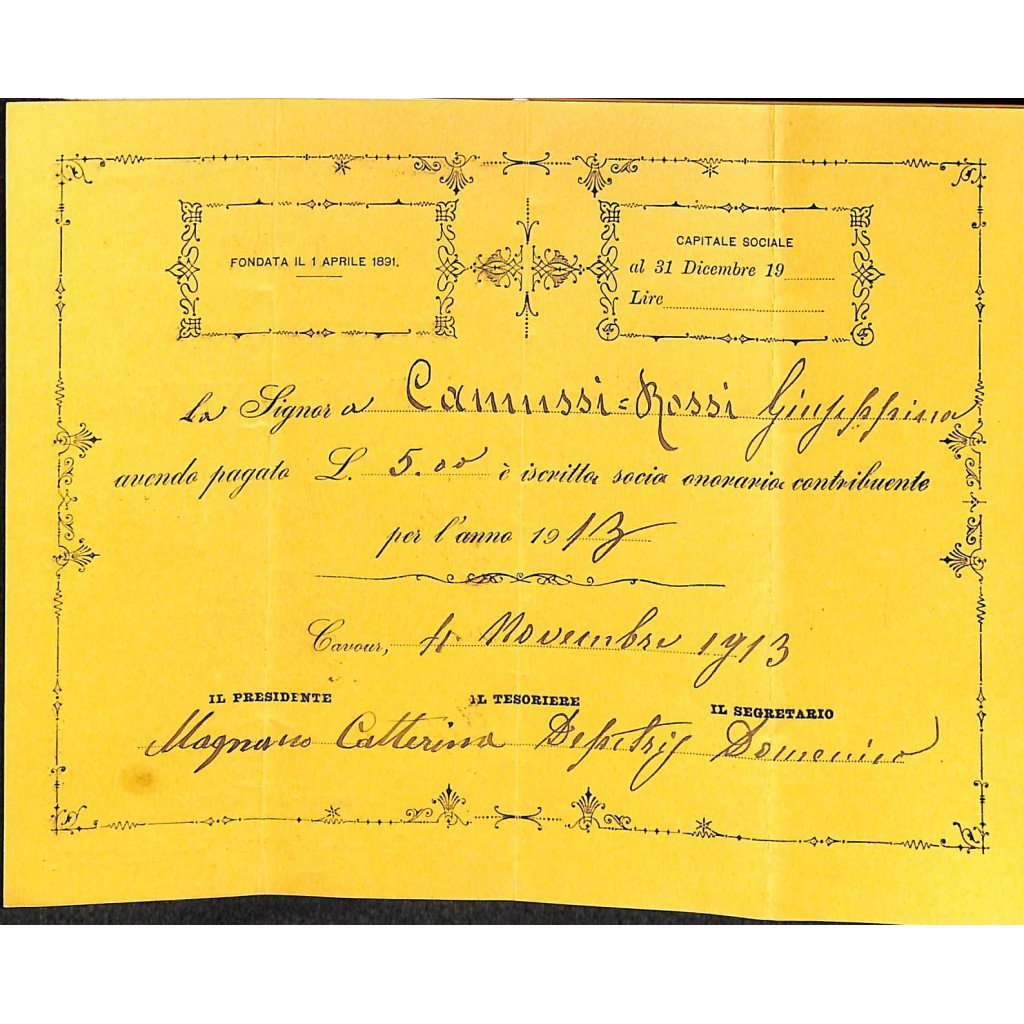 FONDATA IL 1 APRILE 1891.
CAPITALE SOCIALE
al 31 Dicembre 19
Lire
La Signora Camussi=Rossi Giuseppina
avendo pagato L. 5.00 è iscritta socia onoraria contribuente
per l'anno 1913
Cavour, 4 Novembre 1913
IL PRESIDENTE IL TESORIERE IL SEGRETARIO
Magnano Catterina Depetris Domenico